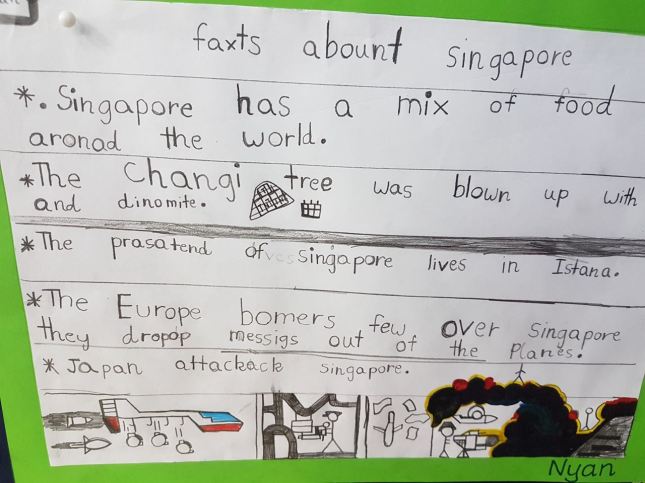 faxts abount singapore
*. Singapore has a mix of food
aronad the world.
*The Changi tree was blown up with
and dinomite.
*The prasatend of singapore lives in Istana.
*The Europe bomers few over singapore
they dropop messigs out of the Planes.
* Japan attackack singapore.
Nyan